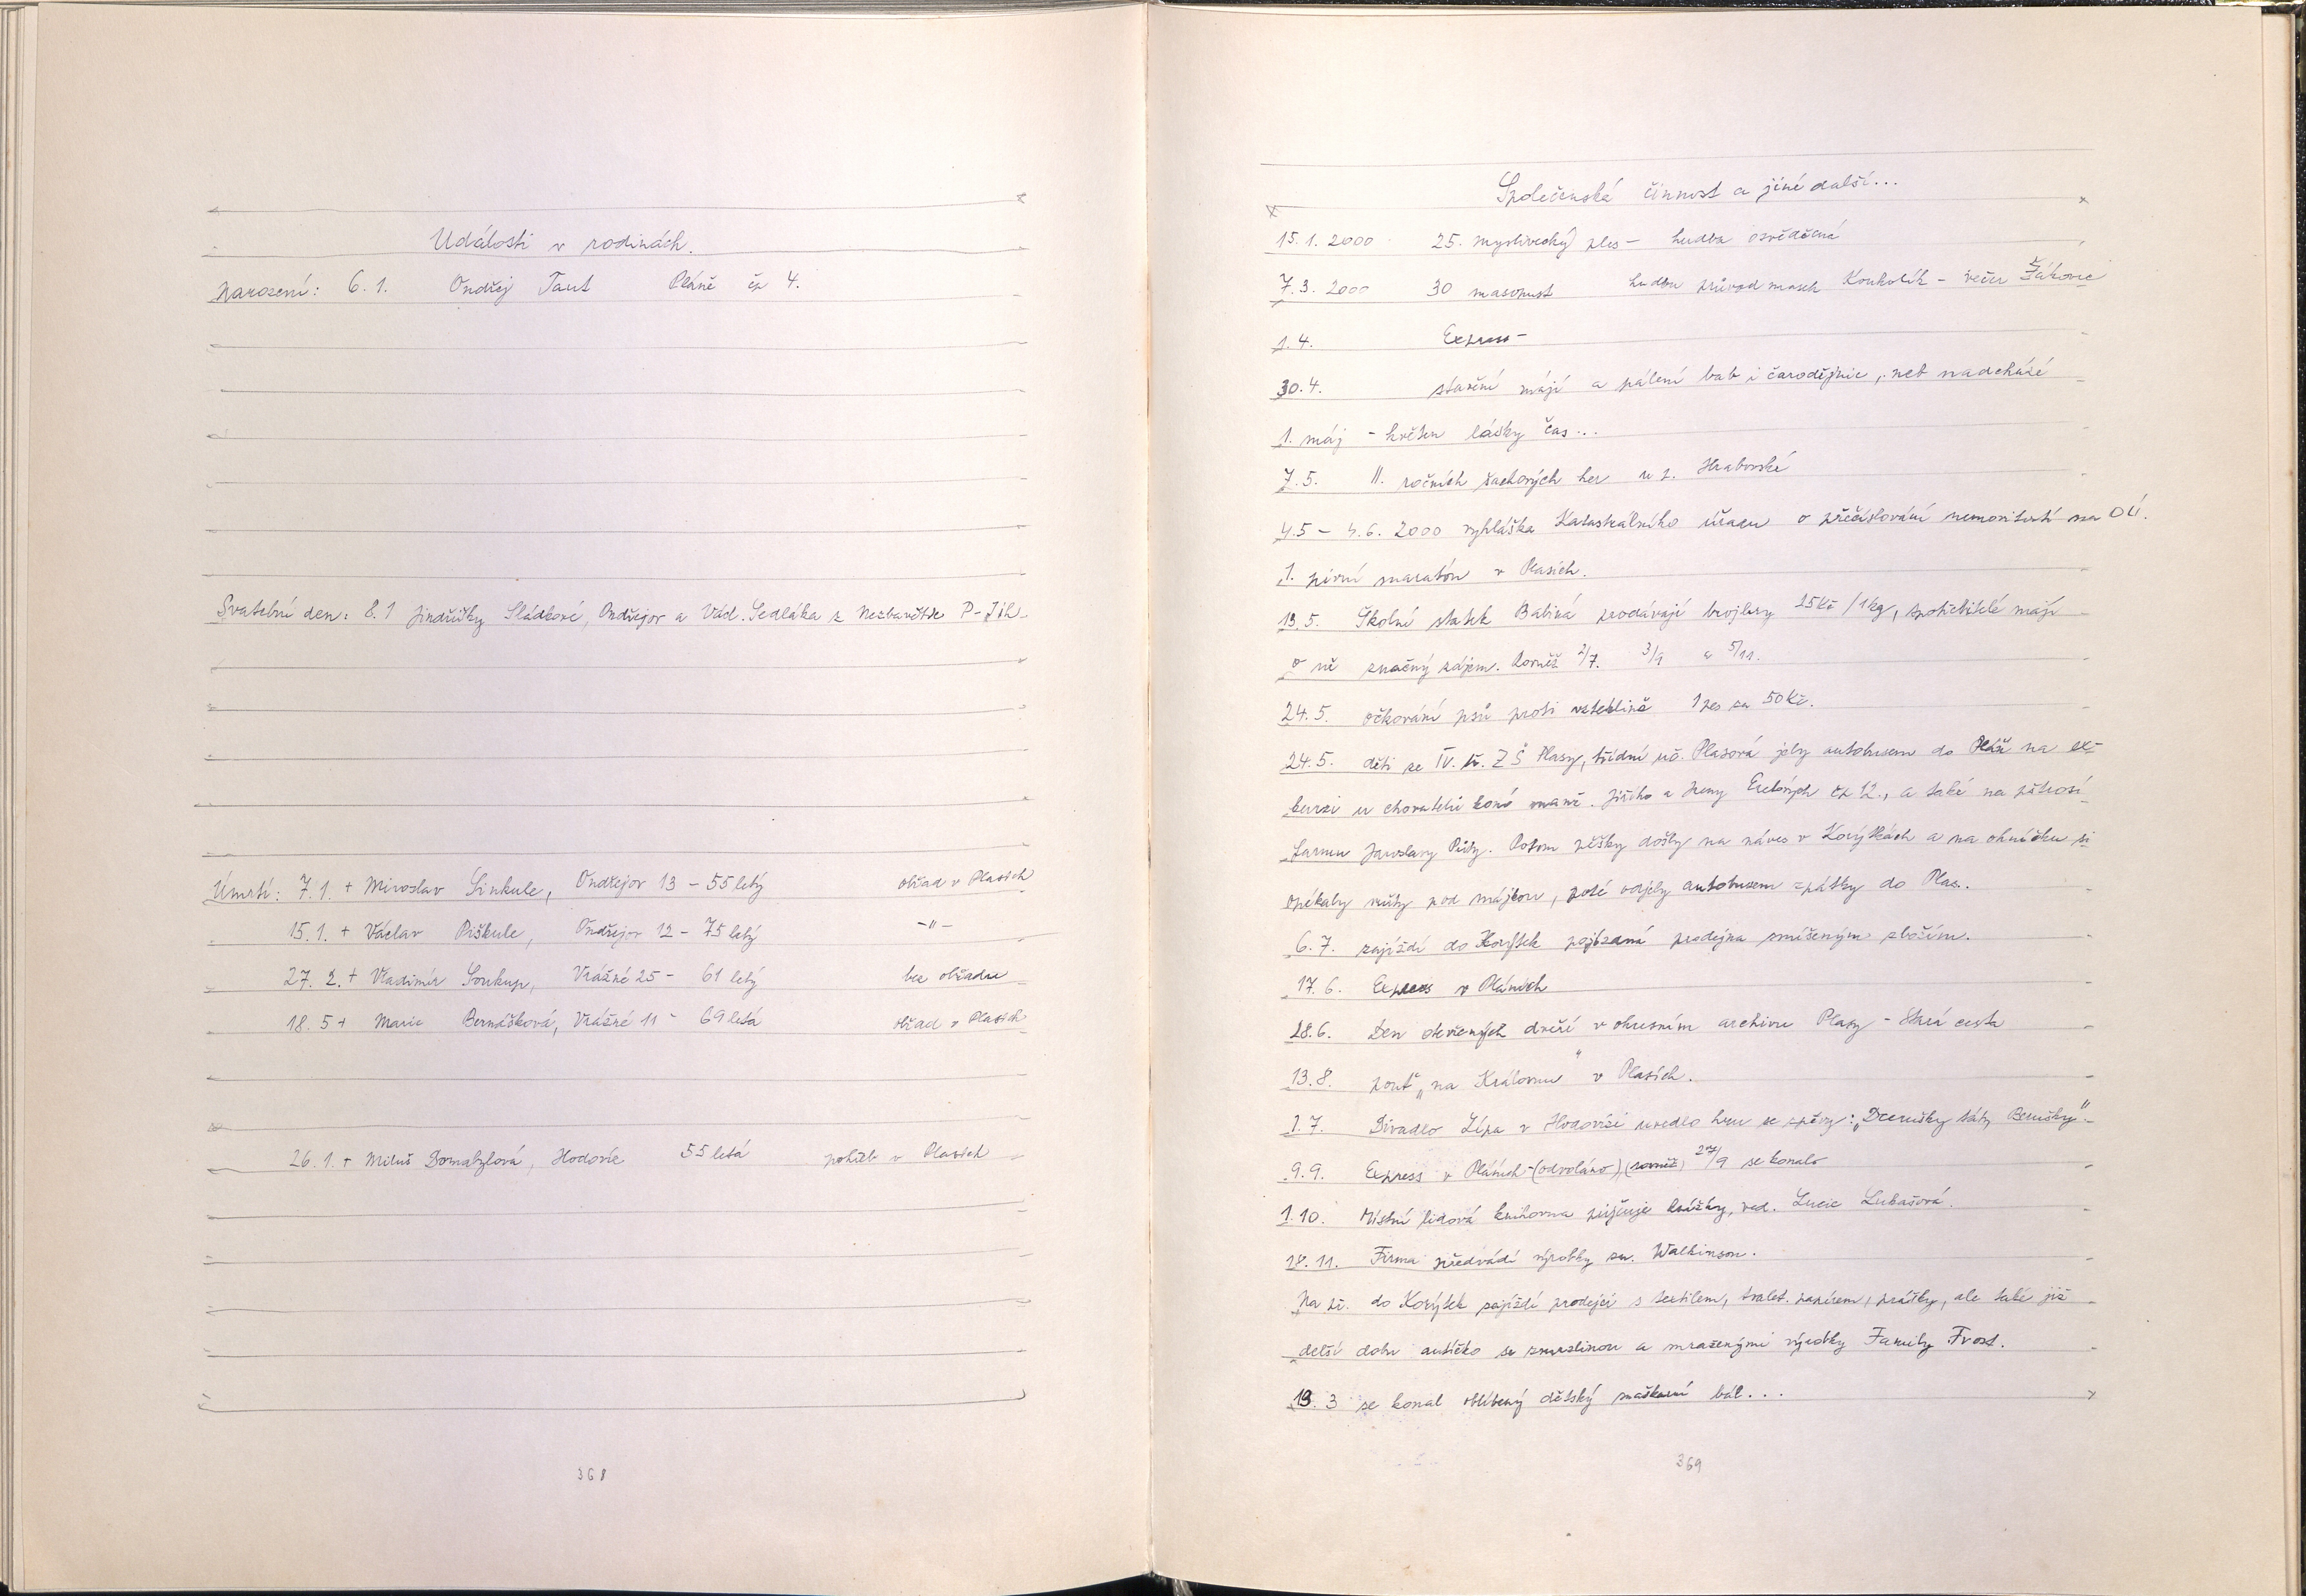 Události v rodinách.
Narození: 6.1. Ondřej Taut Pláně čp 4.
Svatební den: 8.1 Jindřišky Sládkové, Ondřejov a Vád. Sedláka z Nezbavětic P-Jih
Úmrtí: 7.1. + Miroslav Sinkule, Ondřejov 13 - 55 letý obřad v Plasích
15.1. + Václav Piškule, Ondřejov 12 - 75 letý -"-
27. 2. + Vladimír Soukup, Vrážné 25 - 61 letý bez obřadu
18. 5 + Marie Bernášková, Vrážné 11 - 69 letá obřad v Plasích
26.1. + Miluš Domabylová, Hodovíz 55 letá pohřeb v Plasích
368
Společenská činnost a jiné další...
15.1. 2000 25. myslivecký ples - hudba osvědčená
7.3. 2000 30 masopust hudba průvod masek Kouholík - večer Žákovic
1.4. Express -
30.4. stavění májí a pálení bab i čarodějnic, neb nadchází
1. máj - květen lásky čas...
7.5. II. ročník šachových her u p. Hrabovské
4.5 - 4.6. 2000 vyhláška Katastrálního úřadu o přečíslování nemovitostí na OÚ.
1. pivní maratón v Plasích.
13.5. Školní statek Babiná prodávají brojlery 25 Kč/1kg, spotřebitelé mají
o ně značný zájem. Rovněž 2/7. 3/9 a 5/11.
24.5. očkování psů proti vzteklině 1 pes za 50 Kč.
24.5. děti ze IV. tř. ZŠ Plasy, třídní uč. Plasová jely autobusem do Pláň na ex-
kurzi u chovatelů koní manž. Jiřího a Ireny čp 12., a také na pštrosí
farmu Jaroslavy Půty. Potom pěšky došly na náves v Korýtkách a na ohníčku si
opékaly vuřty pod májkou, poté odjely autobusem zpátky do Plas.
6.7. zajíždí do Korýtek pojízdná prodejna smíšeným zbožím.
17.6. Express v Pláních
28.6. Den otevřených dveří v okresním archivu Plasy - Stará cesta
13.8. pouť "na Královnu" v Plasích.
1.7. Divadlo Lípa v Hodovízi uvedlo hru se zpěvy: "Dcerušky táty Berušky"
9.9. Express v Pláních - (odvoláno), (rovněž) 27/9 se konalo
1.10. Místní lidová knihovna půjčuje knížky, ved. Lucie Lukašová.
18.11. Firma předvádí výrobky zn. Walkinson.
Na př. do Korýtek zajíždí prodejci s textilem, toalet. papírem, prášky, ale také již
delší dobu autíčko se zmrzlinou a mraženými výrobky Family Frost.
19. 3 se konal oblíbený dětský maškarní bál...
369